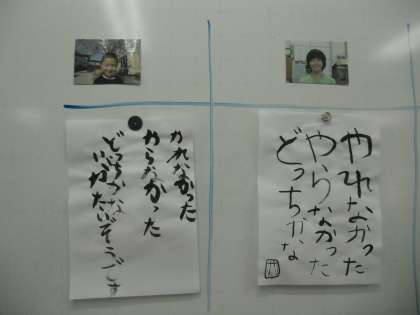 やれなかった
やらなかった
どっちかな
やれなかった
やらなかった
どっちかな